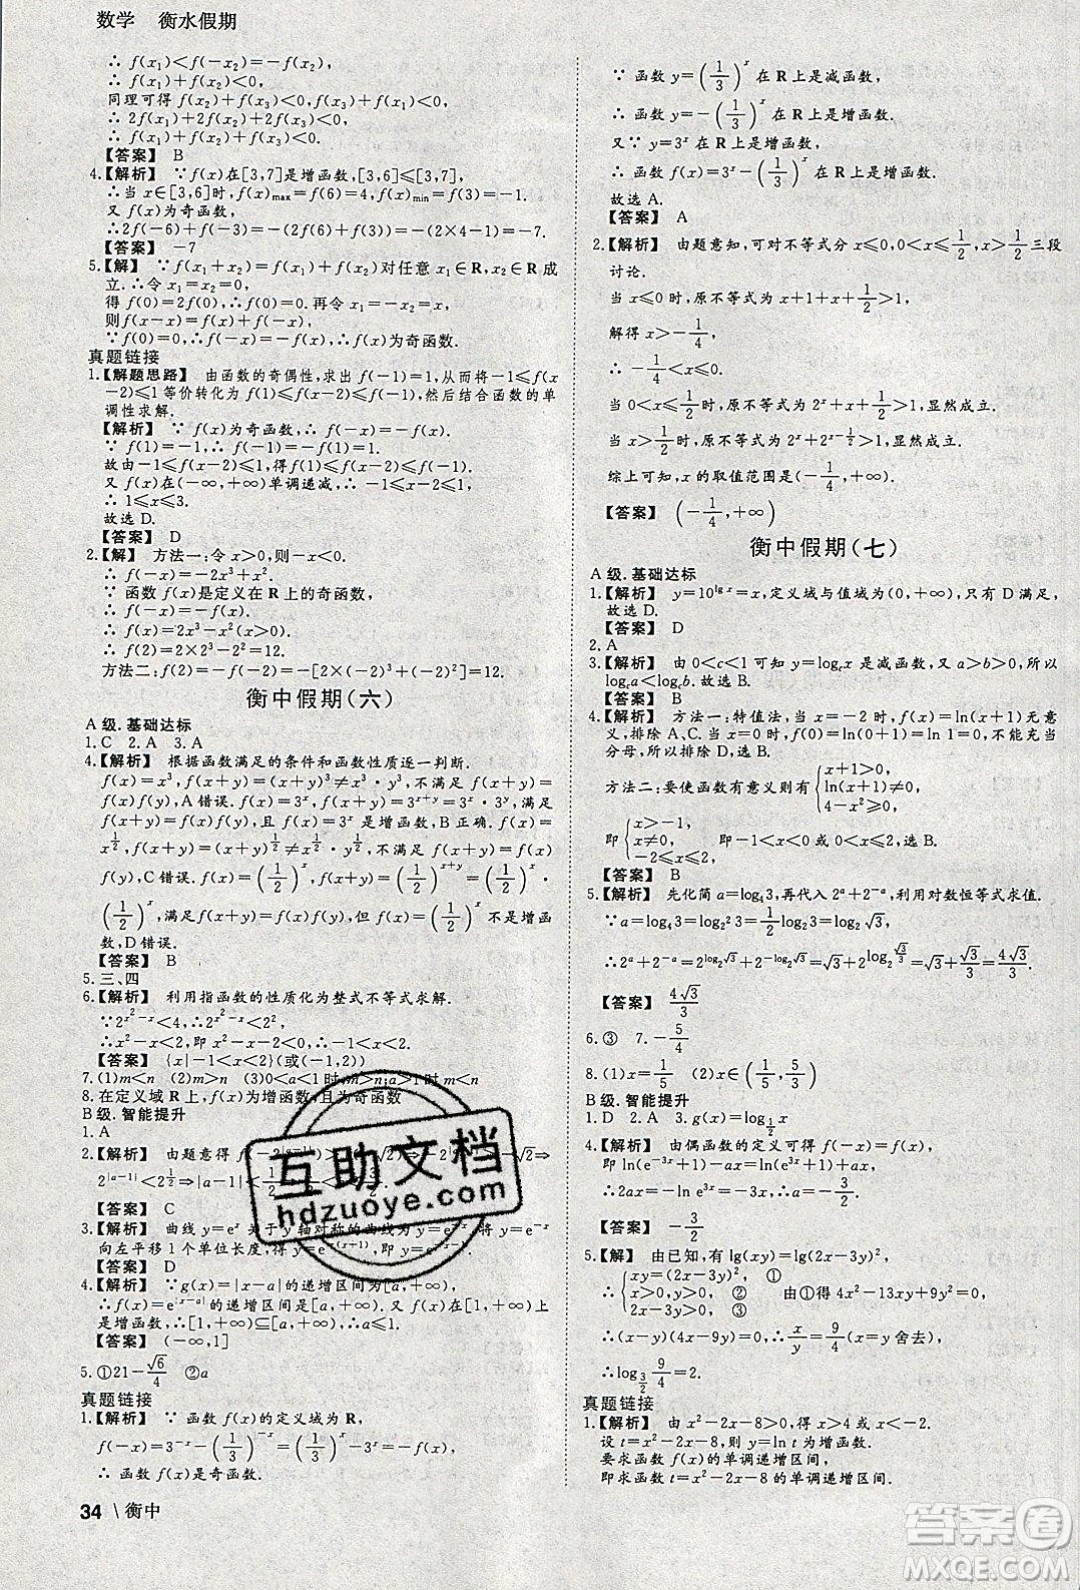 数学 衡水假期
∴ f(x₁)<f(-x₂)=-f(x₂),
∴ f(x₁)+f(x₂)<0,
同理可得 f(x₂)+f(x₃)<0,f(x₁)+f(x₃)<0,
∴ 2f(x₁)+2f(x₂)+2f(x₃)<0,
∴ f(x₁)+f(x₂)+f(x₃)<0.
【答案】 B
4.【解析】 ∵f(x)在[3,7]是增函数,[3,6]⊆[3,7],
∴当 x∈[3,6]时,f(x)max=f(6)=4,f(x)min=f(3)=-1.
又 f(x)为奇函数,
∴2f(-6)+f(-3)=-2f(6)-f(3)=-(2×4-1)=-7.
【答案】 -7
5.【解】 ∵f(x₁+x₂)=f(x₁)+f(x₂)对任意 x₁∈R,x₂∈R 成
立,∴令 x₁=x₂=0,
得 f(0)=2f(0),∴f(0)=0.再令 x₁=x,x₂=-x,
则f(x-x)=f(x)+f(-x).
∵f(0)=0,∴f(-x)=-f(x),∴f(x)为奇函数.
真题链接
1.【解题思路】 由函数的奇偶性,求出 f(-1)=1,从而将-1≤f(x
-2)≤1 等价转化为 f(1)≤f(x-2)≤f(-1),然后结合函数的单
调性求解.
【解析】 ∵f(x)为奇函数,∴f(-x)=-f(x).
∵f(1)=-1,∴f(-1)=-f(1)=1.
故由-1≤f(x-2)≤1,得f(1)≤f(x-2)≤f(-1).
又 f(x)在(-∞,+∞)单调递减,∴-1≤x-2≤1,
∴ 1≤x≤3.
故选 D.
【答案】 D
2.【解】 方法一:令 x>0,则-x<0.
∴ f(-x)=-2x³+x².
∵ 函数 f(x)是定义在 R 上的奇函数,
∴ f(-x)=-f(x).
∴ f(x)=2x³-x²(x>0).
∴ f(2)=2×2³-2²=12.
方法二:f(2)=-f(-2)=-[2×(-2)³+(-2)²]=12.
衡中假期(六)
A 级.基础达标
1.C 2.A 3.A
4.【解析】 根据函数满足的条件和函数性质逐一判断.
f(x)=x³,f(x+y)=(x+y)³≠x³·y³,不满足 f(x+y)=
f(x)f(y),A 错误.f(x)=3ˣ,f(x+y)=3ˣ⁺ʸ=3ˣ·3ʸ,满足
f(x+y)=f(x)f(y),且 f(x)=3ˣ 是增函数,B 正确.f(x)=
x^(1/2),f(x+y)=(x+y)^(1/2)≠x^(1/2)·y^(1/2),不满足 f(x+y)=f(x)
f(y),C 错误.f(x)=(1/2)^x,f(x+y)=(1/2)^(x+y)=(1/2)^x·
(1/2)^y,满足f(x+y)=f(x)f(y),但 f(x)=(1/2)^x 不是增函
数,D 错误.
【答案】 B
5.三、四
6.【解析】 利用指函数的性质化为整式不等式求解.
∵2^(x²-x)<4,∴2^(x²-x)<2²,
∴x²-x<2,即 x²-x-2<0,∴-1<x<2.
【答案】 {x|-1<x<2}(或(-1,2))
7.(1)m<n (2)m<n (3)0<a<1 时,m>n;a>1 时 m<n
8.在定义域 R 上,f(x)为增函数,且为奇函数
B 级.智能提升
1.A
2.【解析】 由题意得 f(-2^|a-1|)
2^|a-1|<2^(1/2)⇒|a-1|<1/2
【答案】 C
3.【解析】 曲线 y=eˣ 关于 y 轴对称的曲线为 y=e⁻ˣ,将 y=e⁻ˣ
向左平移 1 个单位长度,得 y=e^(-(x+1)),即
【答案】 D
4.【解析】 ∵g(x)=|x-a|的递增区间为[a,+∞),
∴f(x)=e^|x-a|的递增区间是[a,+∞).又 f(x)在[1,+∞)上
是增函数,∴[1,+∞)⊆[a,+∞),∴a≤1.
【答案】 (-∞,1]
5.①21-√6/4 ②a
真题链接
1.【解析】 ∵ 函数 f(x)的定义域为 R,
f(-x)=3^(-x)-(1/3)^(-x)=(1/3)^x-3^x=-f(x),
∴ 函数 f(x)是奇函数.
34 \ 衡中
∵ 函数 y=(1/3)^x 在 R 上是减函数,
∴ 函数 y=-(1/3)^x 在 R 上是增函数.
又∵y=3ˣ 在 R 上是增函数,
∴ 函数 f(x)=3^x-(1/3)^x 在 R 上是增函数.
故选 A.
【答案】 A
2.【解析】 由题意知,可对不等式分 x≤0,0<x≤1/2,x>1/2三段
讨论.
当 x≤0 时,原不等式为 x+1+x+1/2>1,
解得 x>-1/4,
∴ -1/4<x≤0.
当 0<x≤1/2时,原不等式为 2ˣ+x+1/2>1,显然成立.
当 x>1/2时,原不等式为 2^x+2^(x-1/2)>1,显然成立.
综上可知,x 的取值范围是(-1/4,+∞).
【答案】 (-1/4,+∞)
衡中假期(七)
A 级.基础达标
1.【解析】 y=10^(lg x)=x,定义域与值域为(0,+∞),只有 D 满足,
故选 D.
【答案】 D
2.A
3.【解析】 由 0<c<1 可知 y=log_c x 是减函数,又 a>b>0,所以
log_c a<log_c b.故选 B.
【答案】 B
4.【解析】 方法一:特值法,当 x=-2 时,f(x)=ln(x+1)无意
义,排除 A、C.当 x=0 时,f(0)=1/ln(0+1)=1/0,不能充当
分母,所以排除 D,选 B.
方法二:要使函数有意义则{x+1>0, ln(x+1)≠0, 4-x²≥0,
即{x>-1, x≠0, -2≤x≤2.
【答案】 B
5.【解析】 先化简 a=log₄3,再代入 2^a+2^(-a),利用对数恒等式求值.
∵a=log₄3=log₂²3=1/2 log₂3=log₂√3,
∴2^a+2^(-a)=2^(log₂√3)+2^(-log₂√3)=√3+2^(log₂(√3/3))=√3+√3/3=4√3/3.
【答案】 4√3/3
6.③ 7.-5/4
8.(1)x=1/5 (2)x∈(1/5,5/3)
B 级.智能提升
1.D 2.A 3.g(x)=log_(1/2) x
4.【解析】 由偶函数的定义可得 f(-x)=f(x),
即 ln(e^(-3x)+1)-ax=ln(e^(3x)+1)+ax,
∴2ax=-ln e^(3x)=-3x,∴a=-3/2.
【答案】 -3/2
5.【解】 由已知,有 lg(xy)=lg(2x-3y)²,
∴{xy=(2x-3y)², ① x>0,y>0, ② 2x-3y>0, ③ 由①得 4x²-13xy+9y²=0,
∴(x-y)(4x-9y)=0,即 x/y=9/4(x=y 舍去),
∴log_(3/2) 9/4=2.
真题链接
1.【解析】 由 x²-2x-8>0,得 x<-2 或 x>4.
设 t=x²-2x-8,则 y=ln t 为增函数.
要求函数 f(x)的单调递增区间,
即求函数 t=x²-2x-8 的单调递增区间.
互助文档
hdzuoye.com
答案圈
MXQE.COM